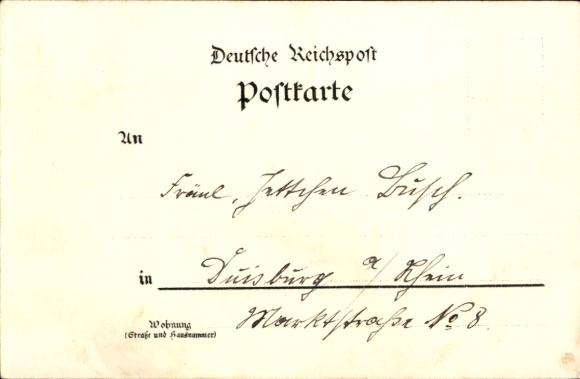 Deutsche Reichspost
Postkarte
An
Fräul. Jettchen Busch.
in Duisburg a/ Rhein
Wohnung
(Straße und Hausnummer)
Marktstraße No 8.